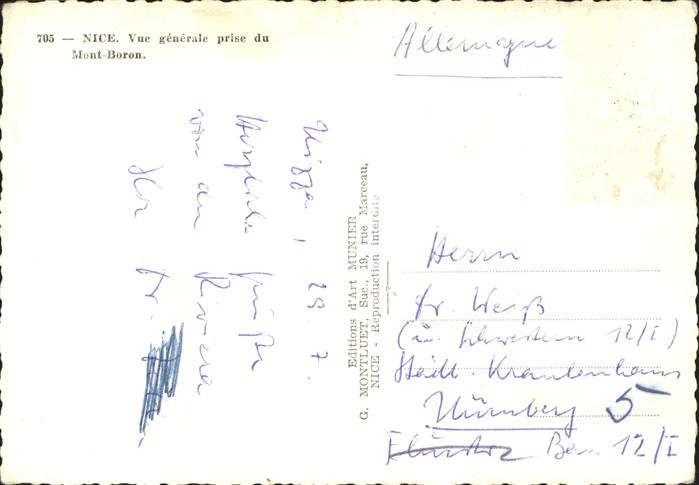 705 — NICE. Vue générale prise du
Mont-Boron.
Allemagne
Nizza, 29. 7.
Herzliche Grüße
von der Riviera
Ihr Dr.
Editions d'Art MUNIER
G. MONTLUET, Suc., 19, rue Marceau,
NICE - Reproduction interdite
Herrn
Dr. Weiß
(u. Schwestern 12/I)
Städt. Krankenhaus
Nürnberg 5
Flurstr. Bau 12/I